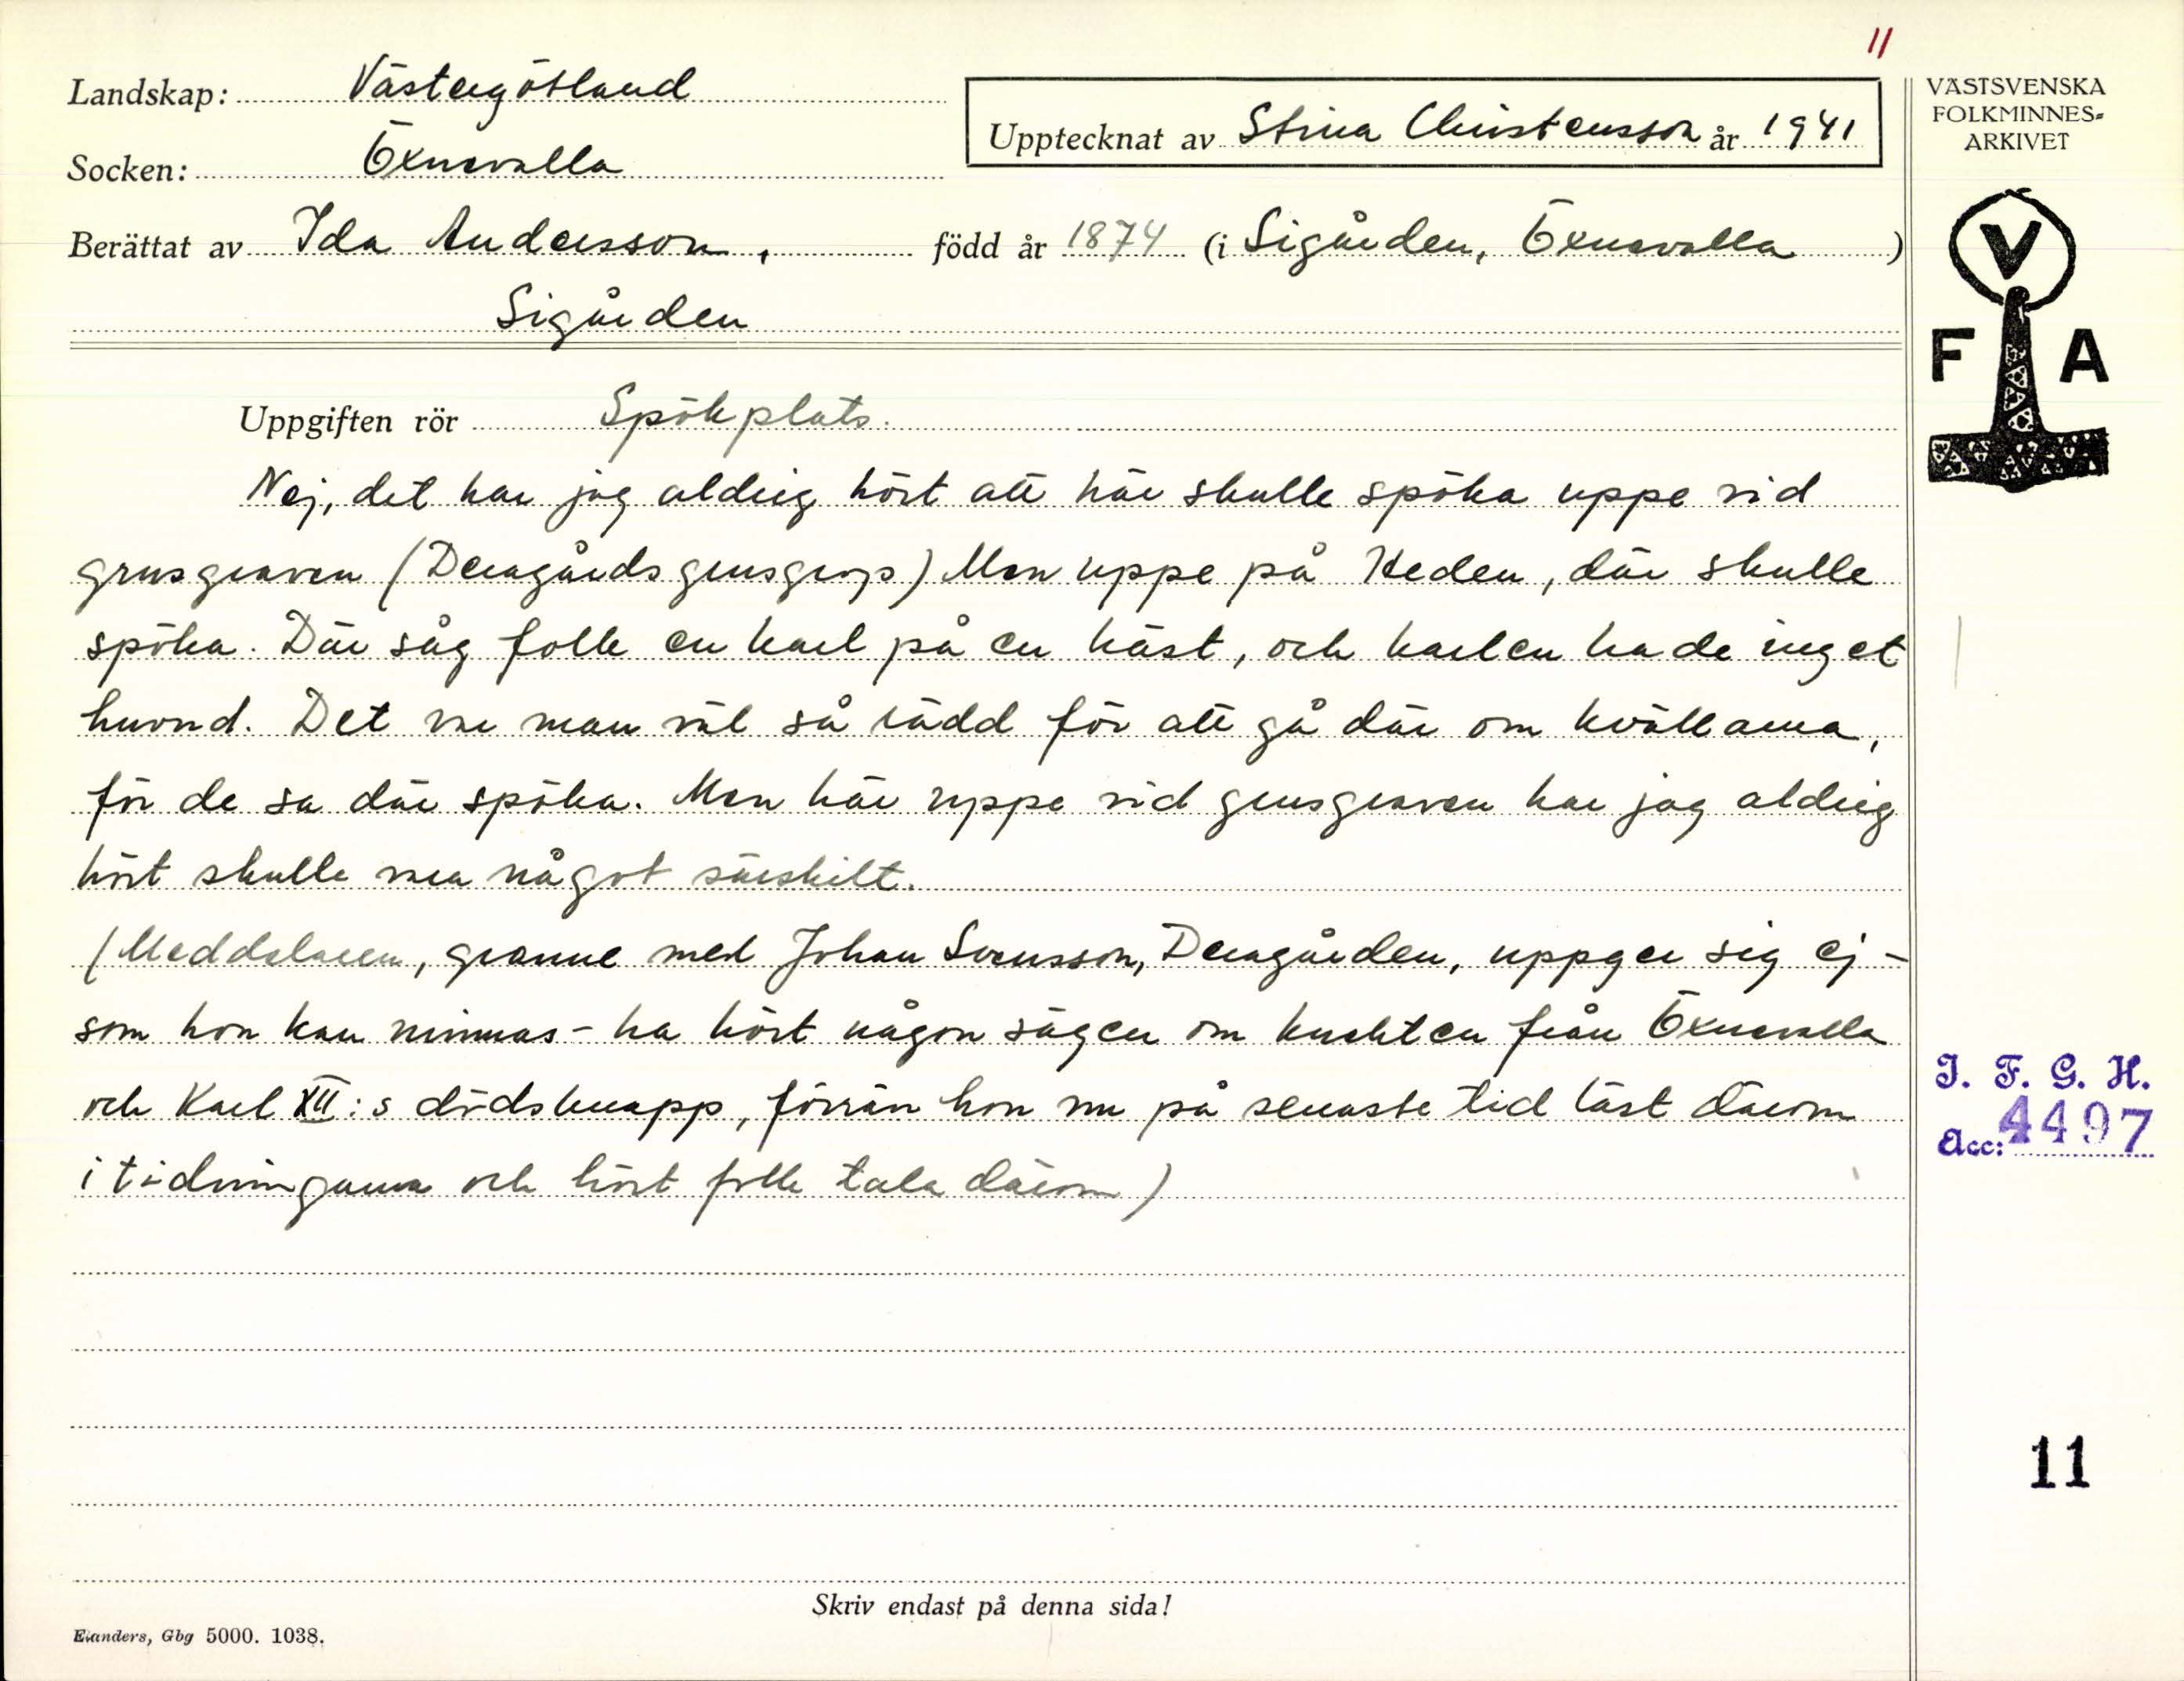 11
Landskap: Västergötland
Upptecknat av Stina Christensson år 1941
Socken: Öxnevalla
Berättat av Ida Andersson, född år 1874 (i Sigården, Öxnevalla)
Sigården
VÄSTSVENSKA
FOLKMINNES-
ARKIVET
V
F A
Uppgiften rör Spökplats.
Nej, det har jag aldrig hört att här skulle spöka uppe vid
grusgraven (Deragårds grusgrop) Men uppe på Heden, där skulle
spöka. Där såg folk en karl på en häst, och karlen hade inget
huvud. Det var man väl så rädd för att gå där om kvällarna,
för de sa där spöka. Men här uppe vid grusgraven har jag aldrig
hört skulle vara något särskilt.
(Meddelaren, granne med Johan Svensson, Deragården, uppger sig ej -
som hon kan minnas - ha hört någon sägen om knekten från Öxnevalla
och Karl XII:s dödsknapp, förrän hon nu på senaste tid läst därom
i tidningarna och hört folk tala därom)
I. F. G. H.
Acc: 4497
11
Skriv endast på denna sida!
Elanders, Gbg 5000. 1038.